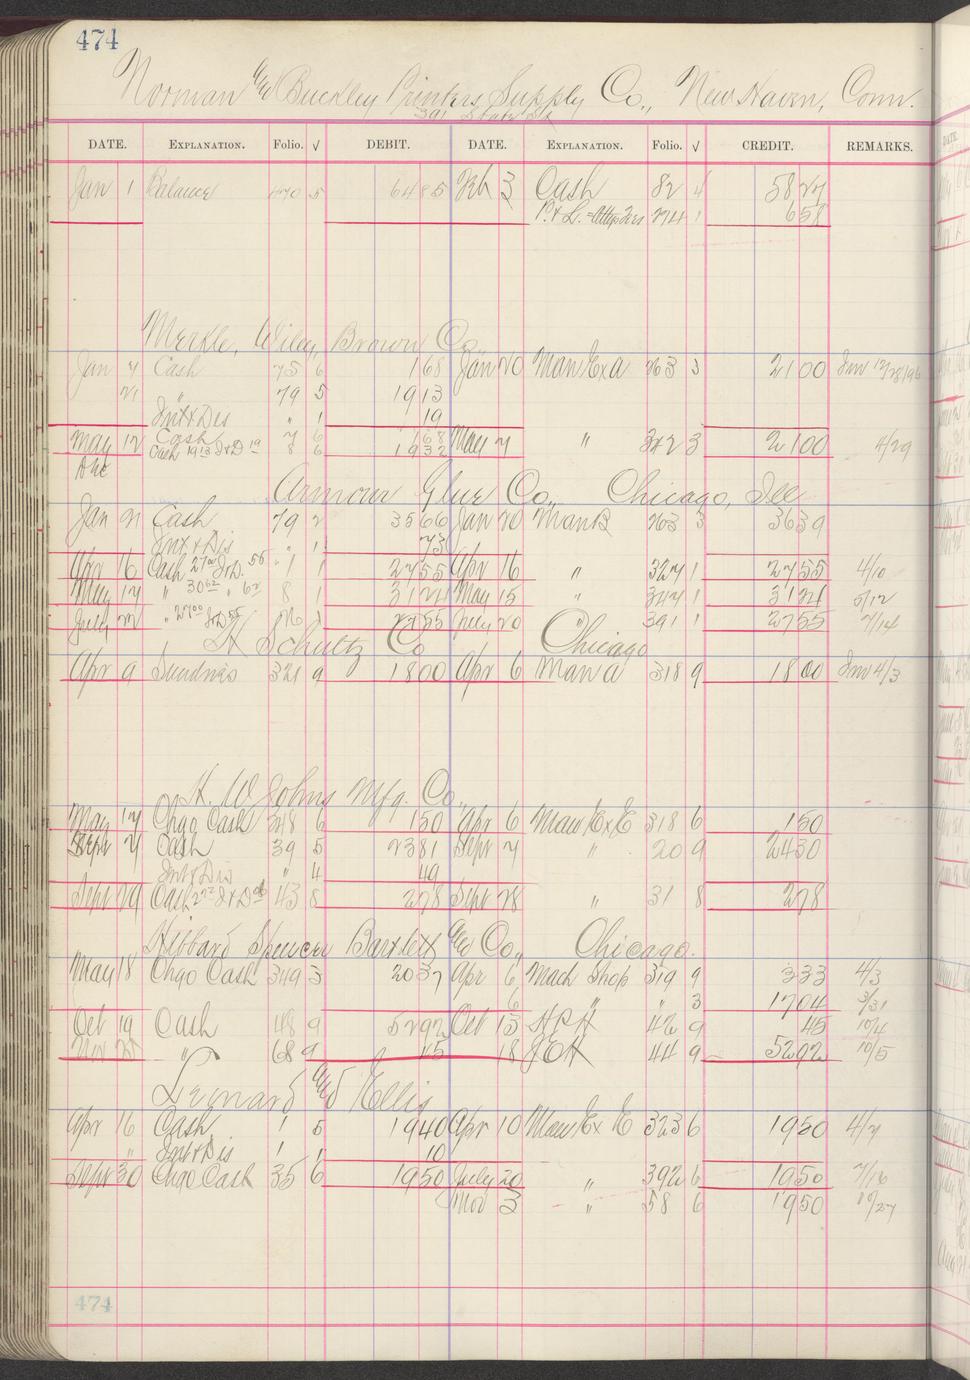 474
Norman and Buckley Printers Supply Co., New Haven, Conn.
391 State St
DATE. EXPLANATION. Folio. √ DEBIT. DATE. EXPLANATION. Folio. √ CREDIT. REMARKS.
Jan 1 Balance 470 5 64 85 Feb 3 Cash 82 4 58 27
P. & L. 274 1 6 58
Merkle, Wiley, Brown Co.
Jan 7 Cash 75 6 1 68 Jan 20 Man Ex A 263 3 21 00
21 " 79 5 19 13
Int & Dis " 1 19
May 12 Cash 7 6 1 68 May 7 " 342 3 21 00 4/29
Cash 19 13 I & D 19 8 6 19 32
Dec
Armour Glue Co., Chicago, Ill
Jan 21 Cash 79 2 35 66 Jan 20 Man B 263 3 36 39
Int & Dis " 1 73
Apr 16 Cash 27 00 I & D. 55 1 1 27 55 Apr 16 " 327 1 27 55 4/10
May 14 " 30 62 " 62 8 1 31 24 May 15 " 347 1 31 24 5/12
July 22 " 27 00 I & D 55 26 1 27 55 July 20 " 391 1 27 55 7/14
H Schultz Co Chicago
Apr 9 Sundries 321 9 18 00 Apr 6 Man A 318 9 18 00 Inv 4/3
H. W. Johns Mfg. Co.
May 14 Chgo Cash 348 6 1 50 Apr 6 Man Ex E 318 6 1 50
Sept 21 Cash 39 5 23 81 Sept 7 " 20 9 24 30
Int & Dis " 4 49
Sept 29 Cash 2 72 I & D 06 43 8 2 78 Sept 28 " 31 8 2 78
Hibbard Spencer Bartlett and Co., Chicago.
May 18 Chgo Cash 349 3 20 37 Apr 6 Mach Shop 319 9 3 33 4/3
6 " " 3 17 04 3/31
Oct 19 Cash 48 9 52 92 Oct 15 H P H 42 9 45 10/4
Nov 25 " 68 9 45 18 J E H 44 9 52 92 10/5
Leonard and Ellis
Apr 16 Cash 1 5 19 40 Apr 10 Man Ex E 323 6 19 50 4/7
" Int & Dis 1 1 10
Sept 30 Chgo Cash 35 6 19 50 July 20 " 392 6 19 50 7/16
Nov 3 " 58 6 19 50 10/27
474